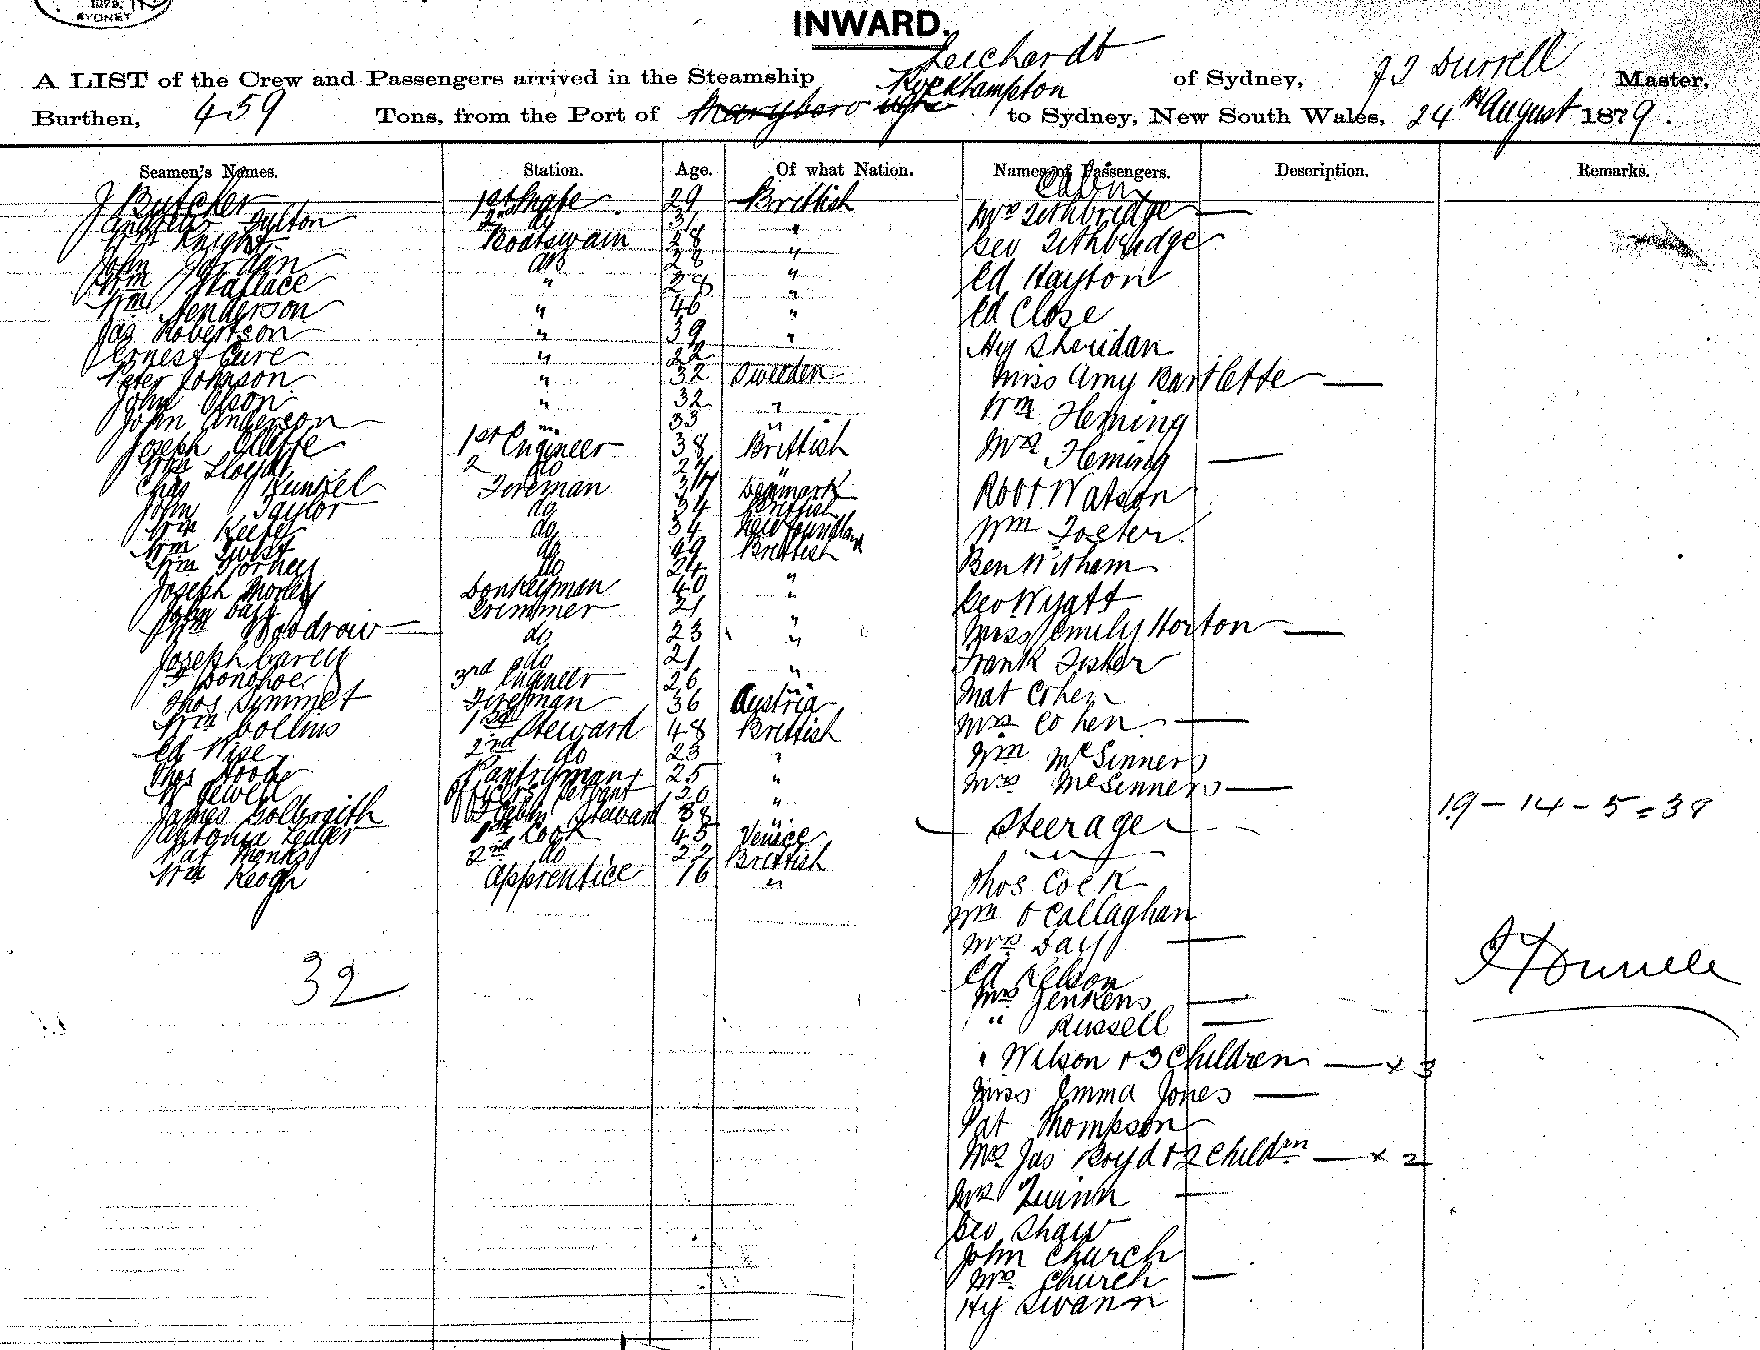 1879
SYDNEY
INWARD.
A LIST of the Crew and Passengers arrived in the Steamship Leichardt of Sydney, J J Durrell Master,
Burthen, 459 Tons, from the Port of Maryboro Rockhampton to Sydney, New South Wales, 24th August 1879.
Seamen's Names. Station. Age. Of what Nation. Names of Passengers. Description. Remarks.
J Butcher 1st Mate 29 Brittish
Andrew Fulton 2nd do 31 "
Knight Boatswain 28 "
John Jordan do 28 "
Wm Wallace " 28 "
Wm Henderson " 46 "
Jas Robertson " 39 "
Ernest Cure " 22
Peter Johnson " 32 Sweden
John Olson " 32 "
John Anderson " 33 "
Joseph 1st Engineer 38 Brittish
Wm Lloyd 2 do 27 "
Chas Kunkel Fireman 37 Denmark
John Taylor do 34 Brittish
Wm Keefe do 34 Newfoundland
Wm Twist do Brittish
Wm do 24 "
Joseph Morley Donkeyman 40 "
John Day Trimmer 21
Wm Woodrow do 23 "
Joseph Carey do 21
Donohoe 3rd Engineer 26 "
Thos Simmet Fireman 36 Austria
Wm Collins 1st Steward 48 Brittish
Ed Wise 2nd do 23 "
Thos Hood Pantryman 25 "
Jewell Officers Servant 20 "
James Golbraith Cabin Steward 38 "
Antonia Ledger Cook 45 Venice
Pat Monks 2nd do 22 Brittish
Wm Keogh Apprentice 16 "
32
Cabin
Mrs Lethbridge —
Geo Lethbridge
Ed Hayton
Ed Close
Hy Sheridan
Miss Amy Bartlette —
Wm Fleming
Mrs Fleming —
Robt Watson
Wm Foster
Ben Witham
Geo Wyatt
Miss Emily Horton —
Frank Fisher
Mat Cohen
Mrs Cohen —
Wm McSinners
Mrs McSinners —
Steerage
19 - 14 - 5 = 38
Thos Cock
Wm O Callaghan
Mrs Day —
Ed Nelson
Mrs Jenkens —
" Russell —
" Wilson + 3 Children — x 3
Miss Emma Jones —
Pat Thompson
Mrs Jas Boyd + 2 Childrn — x 2
Mrs Quinn —
Geo Shaw
John Church
Mrs Church —
Hy Swann
J J Durrell